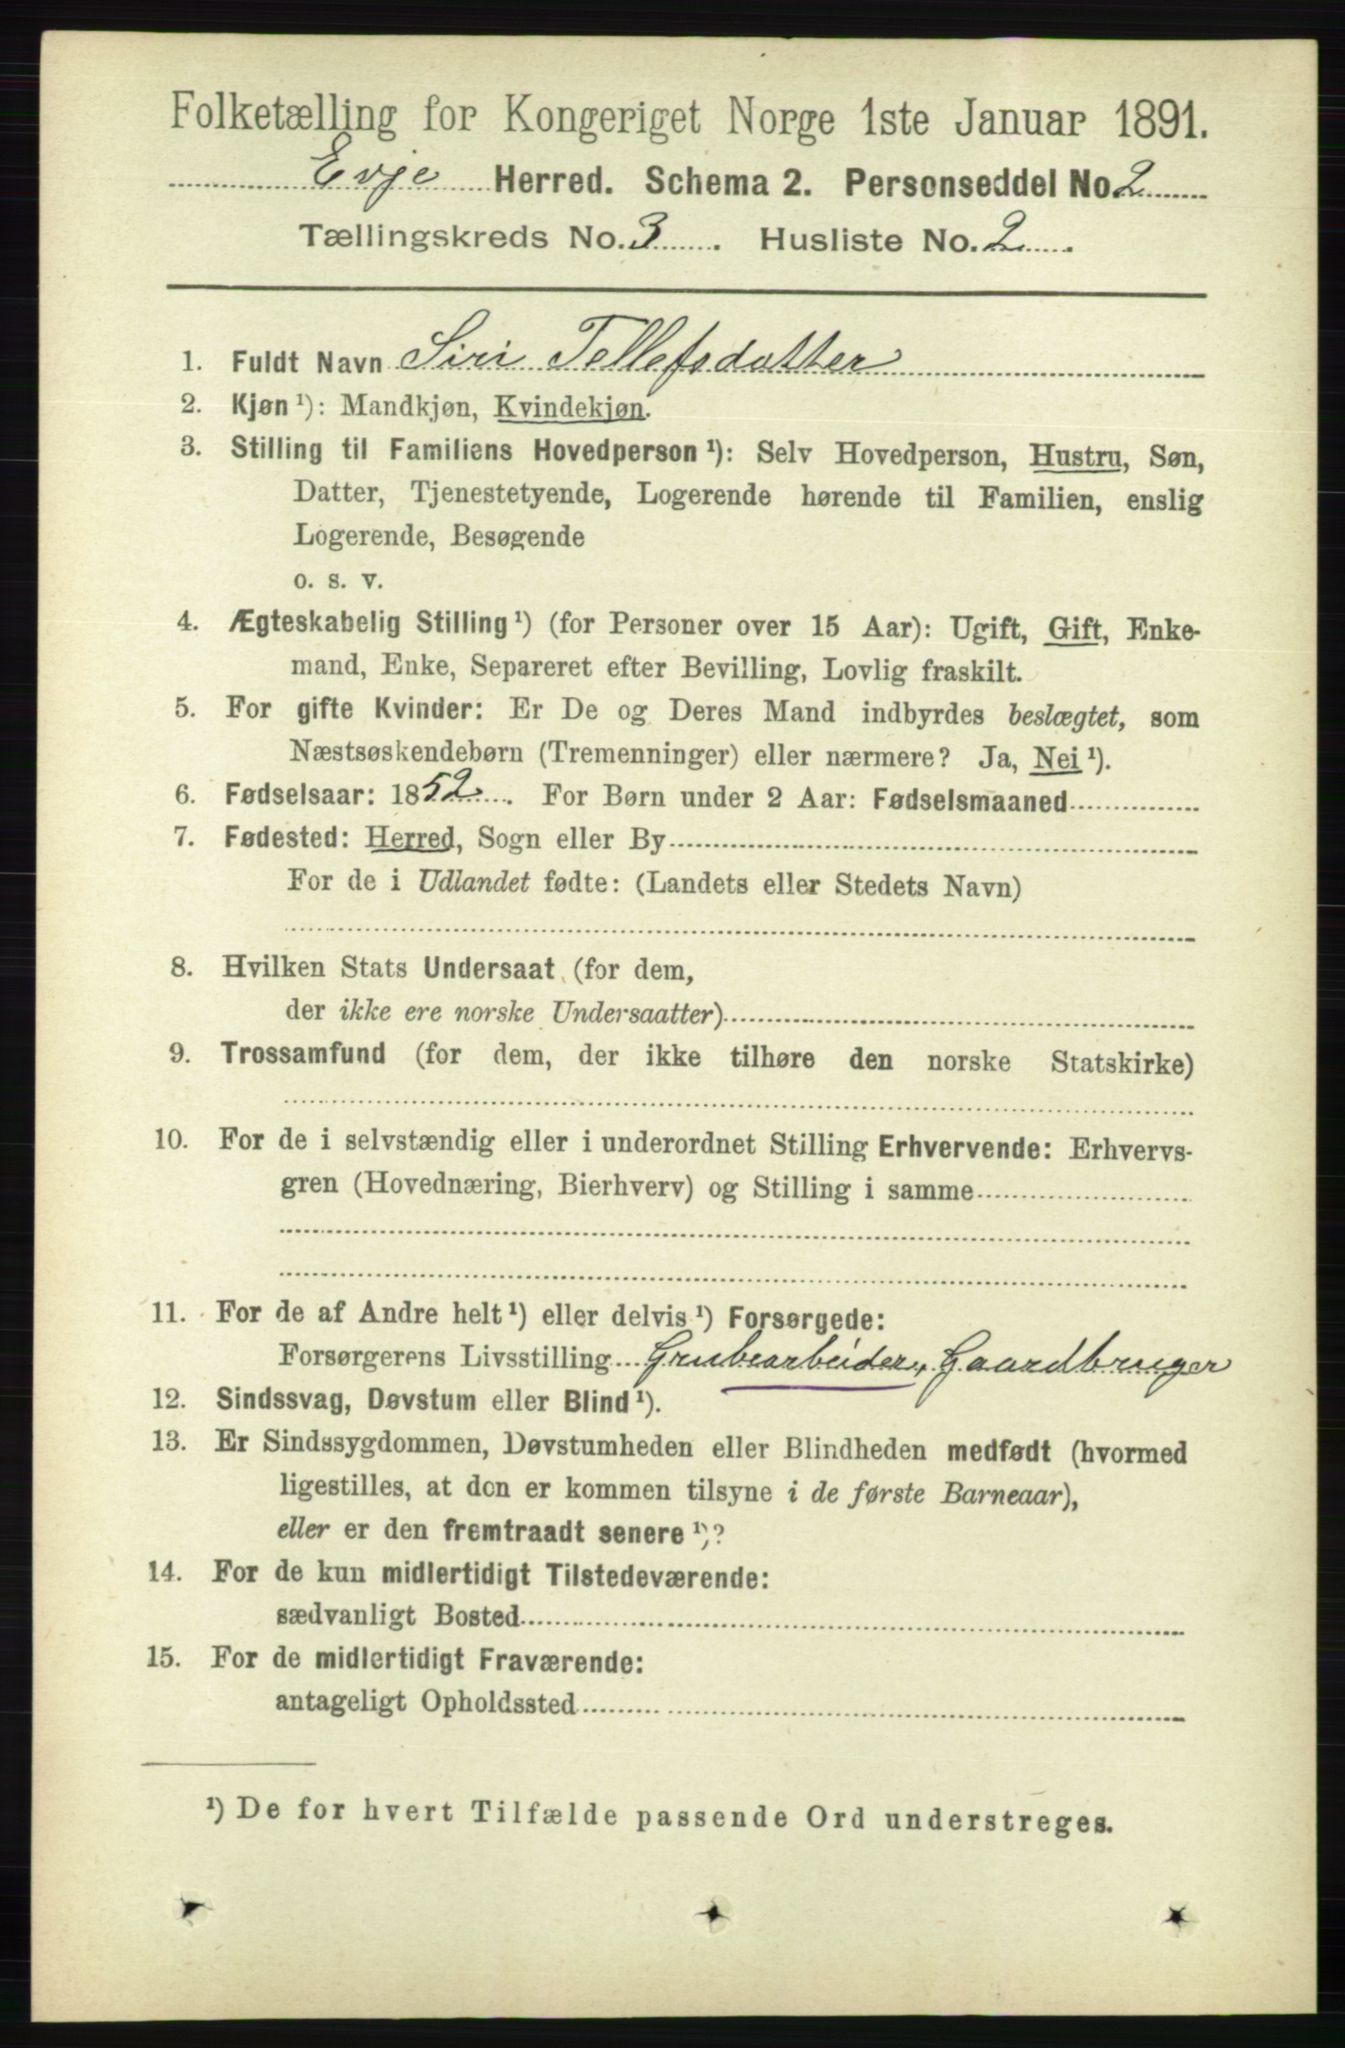 Folketælling for Kongeriget Norge 1ste Januar 1891.
Evje Herred. Schema 2. Personseddel No. 2
Tællingskreds No. 3. Husliste No. 2.
1. Fuldt Navn Siri Tellefsdatter
2. Kjøn ¹): Mandkjøn, Kvindekjøn.
3. Stilling til Familiens Hovedperson ¹): Selv Hovedperson, Hustru, Søn,
Datter, Tjenestetyende, Logerende hørende til Familien, enslig
Logerende, Besøgende
o. s. v.
4. Ægteskabelig Stilling ¹) (for Personer over 15 Aar): Ugift, Gift, Enke-
mand, Enke, Separeret efter Bevilling, Lovlig fraskilt.
5. For gifte Kvinder: Er De og Deres Mand indbyrdes beslægtet, som
Næstsøskendebørn (Tremenninger) eller nærmere? Ja, Nei ¹).
6. Fødselsaar: 1852. For Børn under 2 Aar: Fødselsmaaned
7. Fødested: Herred, Sogn eller By
For de i Udlandet fødte: (Landets eller Stedets Navn)
8. Hvilken Stats Undersaat (for dem,
der ikke ere norske Undersaatter)
9. Trossamfund (for dem, der ikke tilhøre den norske Statskirke)
10. For de i selvstændig eller i underordnet Stilling Erhvervende: Erhvervs-
gren (Hovednæring, Bierhverv) og Stilling i samme
11. For de af Andre helt ¹) eller delvis ¹) Forsørgede:
Forsørgerens Livsstilling Grubearbeider, Gaardbruger
12. Sindssvag, Døvstum eller Blind ¹).
13. Er Sindssygdommen, Døvstumheden eller Blindheden medfødt (hvormed
ligestilles, at den er kommen tilsyne i de første Barneaar),
eller er den fremtraadt senere ¹)?
14. For de kun midlertidigt Tilstedeværende:
sædvanligt Bosted
15. For de midlertidigt Fraværende:
antageligt Opholdssted
¹) De for hvert Tilfælde passende Ord understreges.